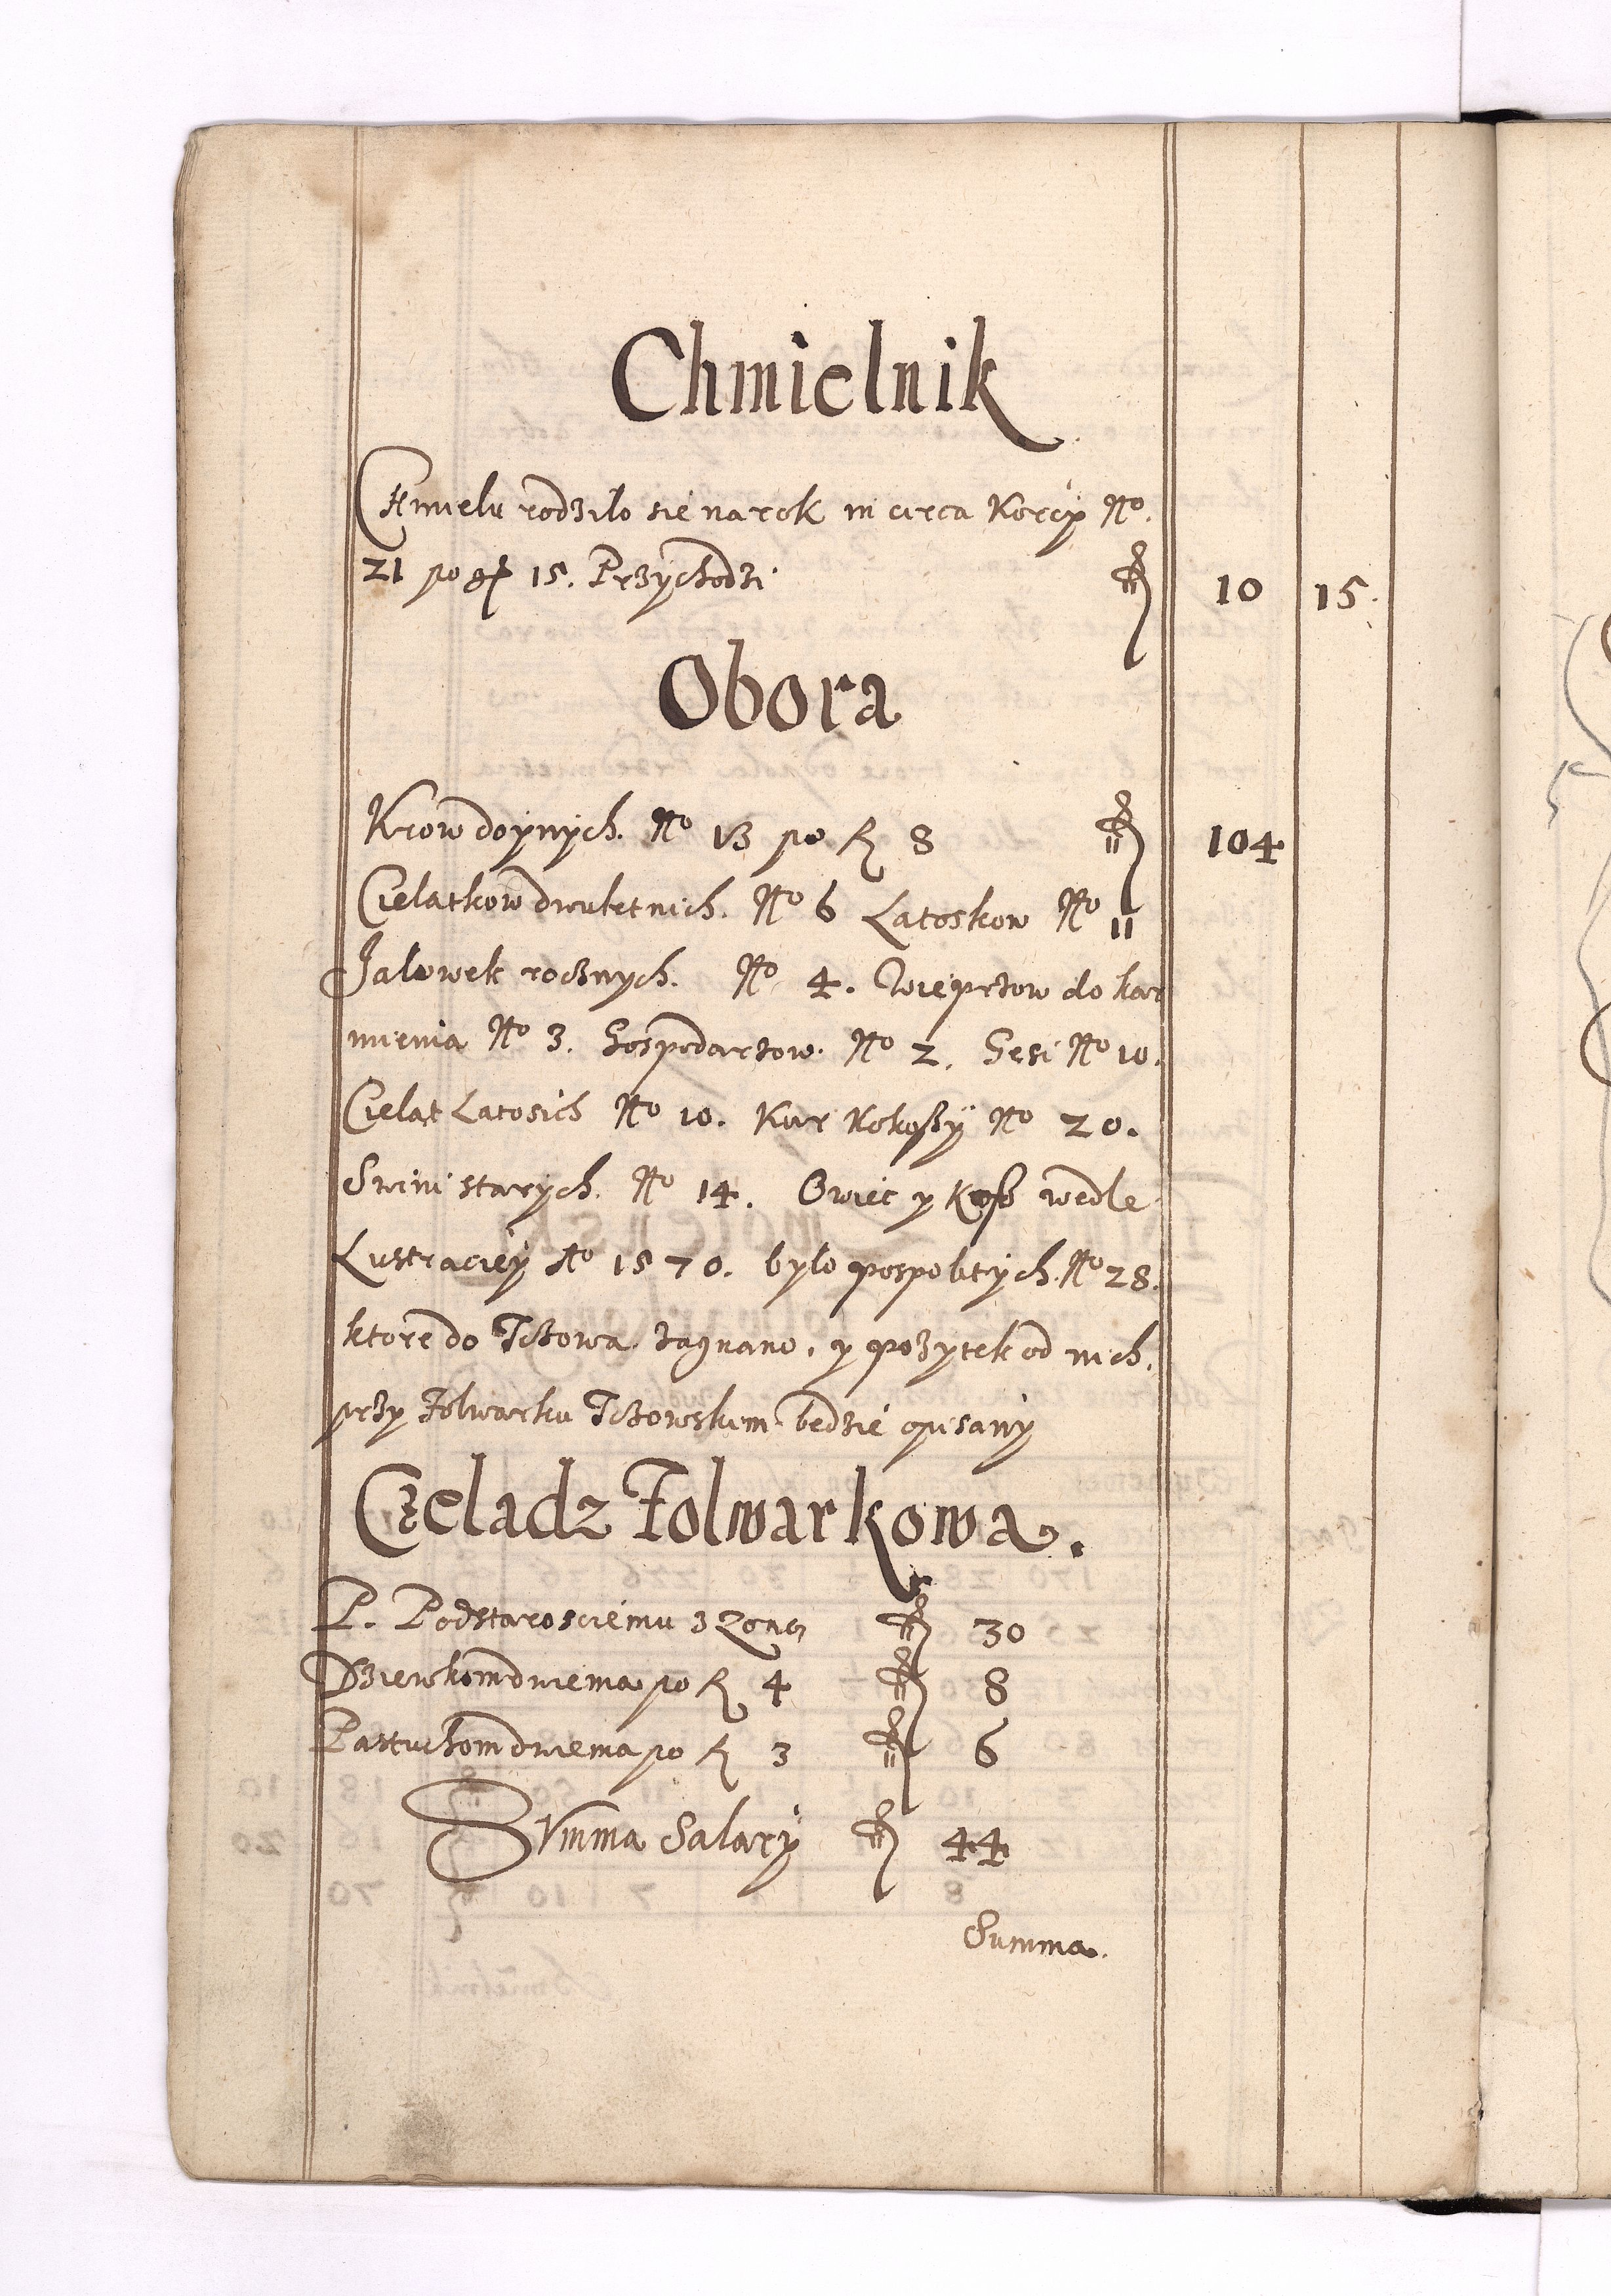 Chmielnik
Chmielu rodzilo sie na rok in circa Korcy No.
21 po gr 15. Przychodzi fl 10 15.
Obora
Krow doynych. No 13 po fl 8 fl 104
Cielatkow dwuletnich. No 6 Latoskow No 11
Jalowek rocznych. No 4. Wieprzow do kar
mienia No 3. Gospodarzow. No 2. Gesi No 10.
Cielat Latosich No 10. Kur Kokoszy No 20.
Swini starych. No 14. Owiec y Koz wedle
Lustraciey Ao 1570. bylo pospolitych. No 28.
ktore do Tczowa zagnano. y pozytek od nich.
przy Folwarku Tczowskim bedzie opisany
Czeladz Folwarkowa.
P. Podstarosciemu z Zoną fl 30
Dziewkom dwiema po fl 4 fl 8
Pastuchom dwiema po fl 3 fl 6
Summa Salary fl 44
Summa.